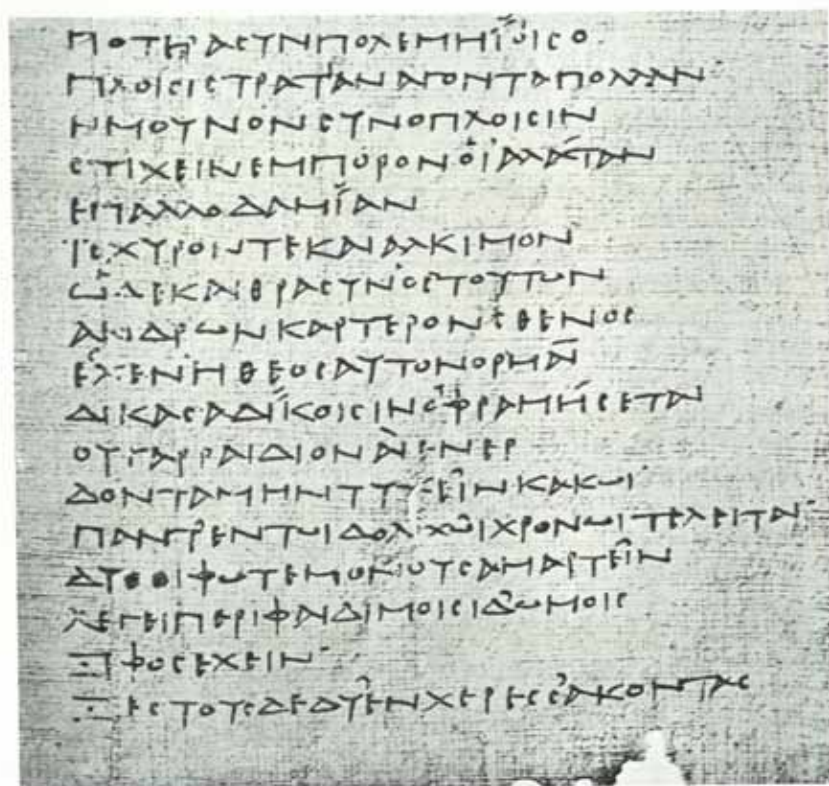 ΠΟΤΕΡΑϹΥΝΠΟΛΕΜΗΪΟΙϹΟ
ΠΛΟΙϹΙϹΤΡΑΤΙΑΝΑΓΟΝΤΑΠΟΛΛΑΝ·
ΗΜΟΥΝΟΝϹΥΝΟΠΛΟΙϹΙΝ
ϹΤΙΧΕΙΝΕΜΠΟΡΟΝΟΙΑΛΑΤΑΝ
ΕΠΑΛΛΟΔΑΜΙΑΝ
ΙϹΧΥΡΟΝΤΕΚΑΙΑΛΚΙΜΟΝ
ΩΔΕΚΑΙΘΡΑϹΥΝΟϹΤΟΥΤΩΝ
ΑΝΔΡΩΝΚΑΡΤΕΡΟΝϹΘΕΝΟϹ
ΕϹΧΕΝΗΘΕΟϹΑΥΤΟΝΟΡΜΑΙ
ΔΙΚΑϹΑΔΙΚΟΙϹΙΝΟΦΡΑΜΗϹΕΤΑΙ
ΟΥΓΑΡΡΑΙΔΙΟΝΑΙΕΝΕΡ
ΔΟΝΤΑΜΗΝΤΥΧΕΙΝΚΑΚΩΙ·
ΠΑΝΤΕΝΤΩΙΔΟΛΙΧΩΙΧΡΟΝΩΙΤΕΛΕΙΤΑΙ·
ΔΥΟΟΙΦΩΤΕΜΟΝΟΥϹΑΜΑΡΤΕΙΝ
ΛΕΓΕΙΠΕΡΙΦΑΙΔΙΜΟΙϹΙΔΩΜΟΙϹ
ΞΙΦΟϹΕΧΕΙΝ·
ΞΕϹΤΟΥϹΔΕΔΥΕΝΧΕΡΕϹϹΑΚΟΝΤΑϹ